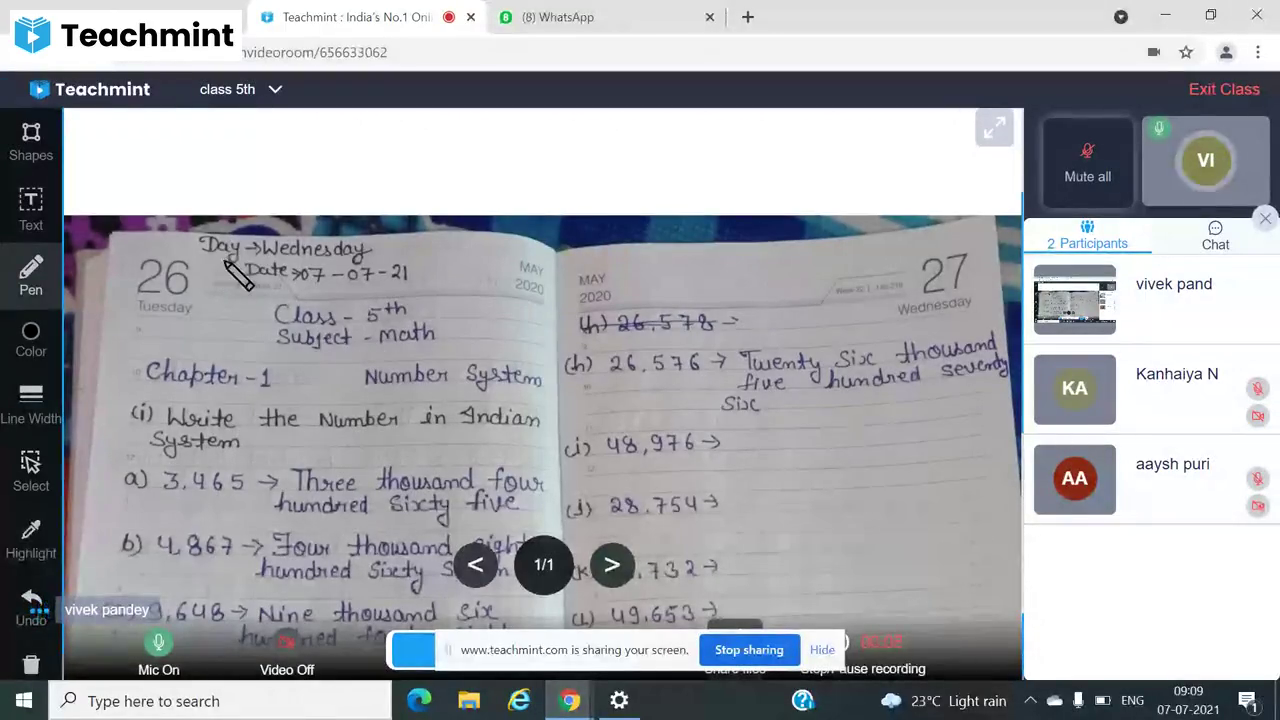 Teachmint : India's No.1 Onli
(8) WhatsApp
Teachmint
nvideoroom/656633062
Teachmint
class 5th
Exit Class
Shapes
Text
Pen
Color
Line Width
Select
Highlight
Undo
Day → Wednesday
Date → 07-07-21
26
Tuesday
MAY
2020
Class - 5th
Subject - math
Chapter-1 Number System
(i) Write the Number in Indian
System
a) 3,465 → Three thousand four
hundred Sixty five
b) 4,867 → Four thousand eight
hundred Sixty
9,648 → Nine thousand six
MAY
2020
27
Wednesday
(h) 26,578 →
(h) 26,576 → Twenty Six thousand
five hundred seventy
Six
(i) 48,976 →
(j) 28,754 →
(k) ,732 →
(l) 49,653 →
< 1/1 >
vivek pandey
Mic On
Video Off
www.teachmint.com is sharing your screen.
Stop sharing
Hide
Share files
Stop/Pause recording
Mute all
VI
2 Participants
Chat
vivek pand
KA
Kanhaiya N
AA
aaysh puri
Type here to search
23°C Light rain
ENG
09:09
07-07-2021
1